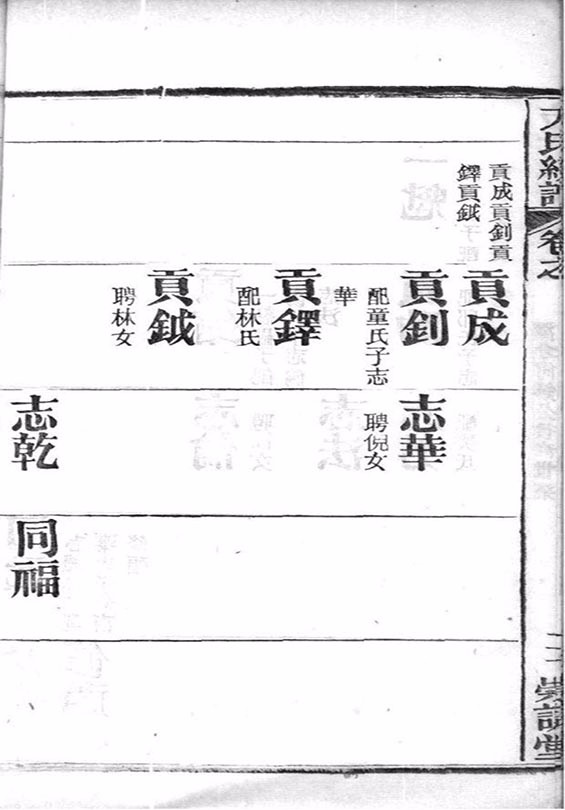 卷之
貢成貢釗貢
鐸貢鉞
貢成
貢釗
配童氏子志
華
貢鐸
配林氏
貢鉞
聘林女
志華
聘倪女
志乾
同福